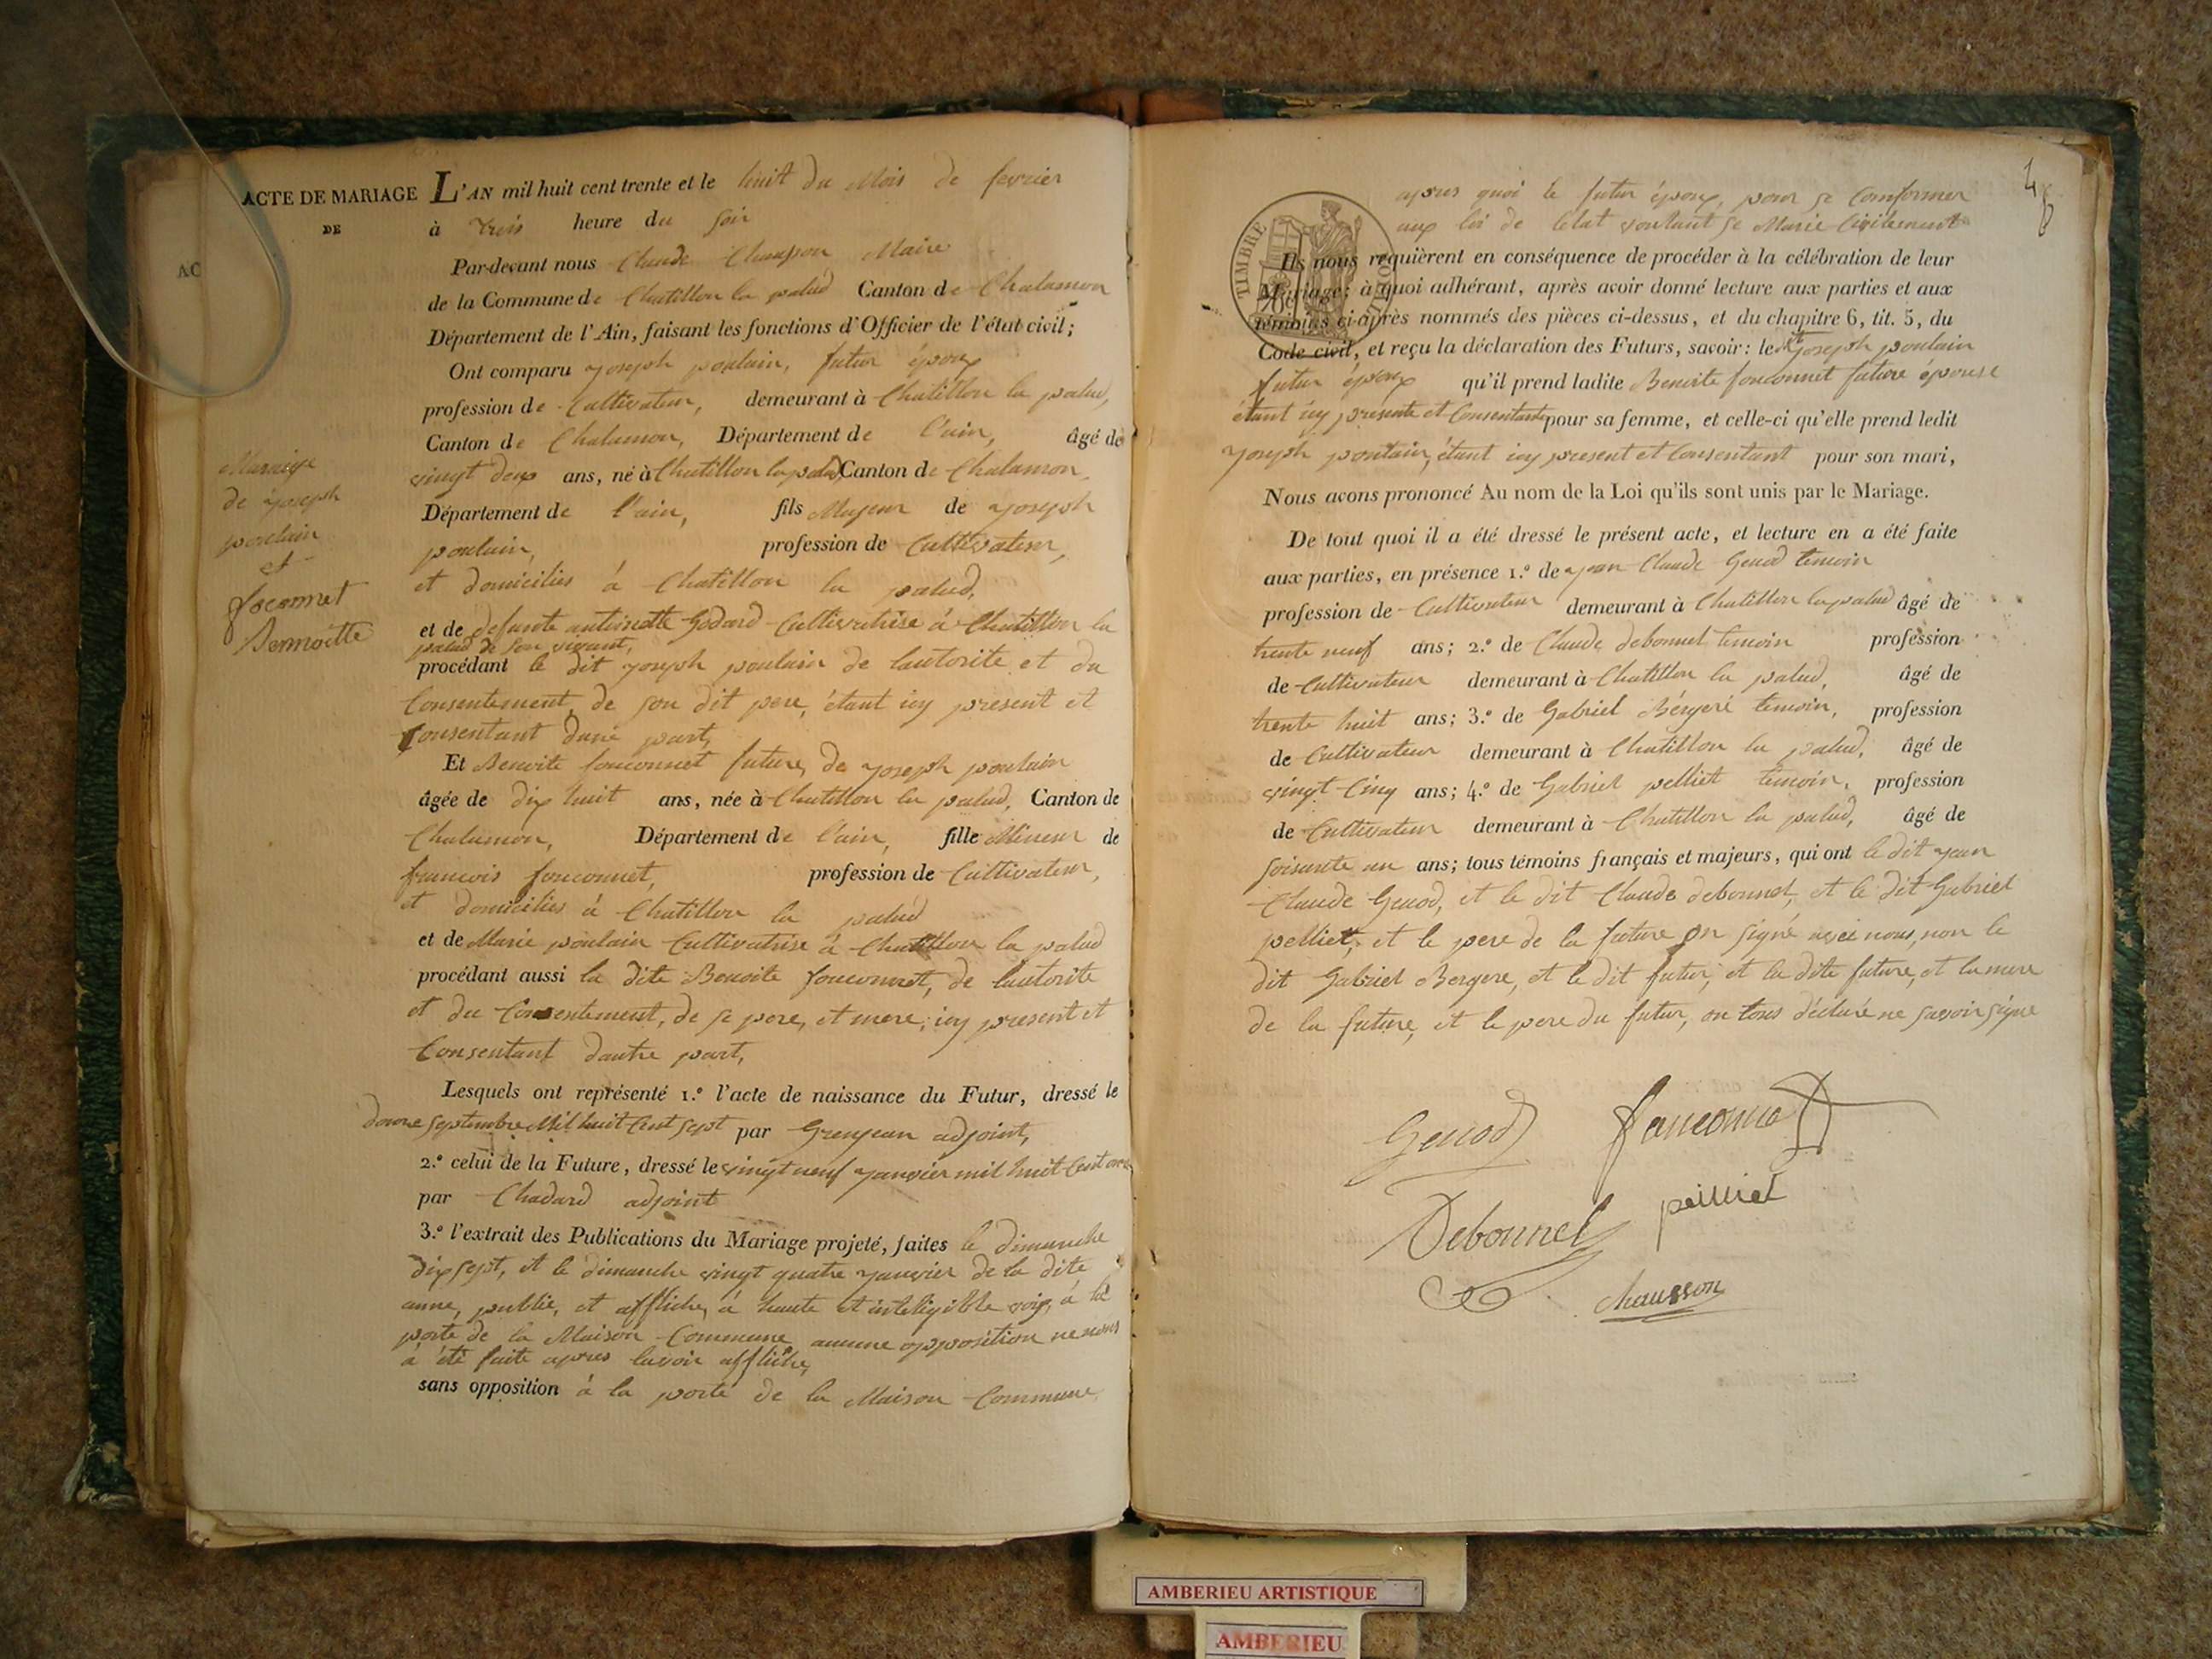 ACTE DE MARIAGE
DE
AC
Maraige
de joseph
poulain
et
foconnet
Bennoitte
L'AN mil huit cent trente et le huit du Mois de fevrier
à trois heure du soir
Par-devant nous Claude Chausson Maire
de la Commune de Chatillon la palud Canton de Chalamon
Département de l'Ain, faisant les fonctions d'Officier de l'état civil;
Ont comparu joseph poulain, futur époux
profession de Cultivateur, demeurant à Chatillon la palud,
Canton de Chalamon, Département de l'ain, âgé de
vingt deux ans, né à Chatillon la palud, Canton de Chalamon,
Département de l'ain, fils Majeur de joseph
poulain, profession de Cultivateur,
et domicilies à Chatillon la palud,
et de defunte antoinette Godard Cultivatrise à Chatillon la
palud de son vivant,
procédant le dit joseph poulain de lautorite et du
Consentement de son dit pere, étant icy present et
Consentant dune part,
Et Benoite fouconnet future, de joseph poulain
âgée de dix huit ans, née à Chatillon la palud, Canton de
Chalamon, Département de l'ain, fille Mineur de
francois fouconnet, profession de Cultivateur,
et domicilies à Chatillon la palud
et de Marie poulain Cultivatrise à Chatillon la palud
procédant aussi la dite Benoite fouconnet, de lautorite
et du Consentement, de se pere, et mere, icy present et
Consentant dautre part,
Lesquels ont représenté 1.° l'acte de naissance du Futur, dressé le
douze septembre Mil huit Cent sept par Grenjean adjoint,
2.° celui de la Future, dressé le vingt neuf janvier mil huit Cent onze
par Chadard adjoint
3.° l'extrait des Publications du Mariage projeté, faites le dimanche
dix sept, et le dimanche vingt quatre janvier de la dite
anne, publie, et affliche, à haute et inteligible voix, à la
porte de la Maison Commune, aucune opposition ne nous
à été faite apres lavoir affliche,
sans opposition à la porte de la Maison Commune,
48
TIMBRE
apres quoi le futur époux, pour se Comformer
aux loi de letat voulant se Marie Civilement
Ils nous requièrent en conséquence de procéder à la célébration de leur
Mariage; à quoi adhérant, après avoir donné lecture aux parties et aux
témoins ci-après nommés des pièces ci-dessus, et du chapitre 6, tit. 5, du
Code civil, et reçu la déclaration des Futurs, savoir: le dit joseph poulain
futur époux qu'il prend ladite Benoite fouconnet future epouse
étant icy presente et Consentante pour sa femme, et celle-ci qu'elle prend ledit
joseph poulain, étant icy present et Consentant pour son mari,
Nous avons prononcé Au nom de la Loi qu'ils sont unis par le Mariage.
De tout quoi il a été dressé le présent acte, et lecture en a été faite
aux parties, en présence 1.° de jean Claude Genod temoin
profession de Cultivateur demeurant à Chatillon la palud âgé de
trente neuf ans; 2.° de Claude debonnel temoin profession
de Cultivateur demeurant à Chatillon la palud, âgé de
trente huit ans; 3.° de Gabriel Bérgeré temoin, profession
de Cultivateur demeurant à Chatillon la palud, âgé de
vingt Cinq ans; 4.° de Gabriel pelliet temoin, profession
de Cultivateur demeurant à Chatillon la palud, âgé de
soisante un ans; tous témoins français et majeurs, qui ont le dit jean
Claude Genod, et le dit Claude debonnel, et le dit Gabriel
pelliet, et le pere de la future on signé avec nous, non le
dit Gabriel Bergere, et le dit futur, et la dite future, et la mere
de la future, et le pere du futur, on tous déclaré ne savoir signe
Genod fauconnet
Debonnel peilliet
chausson
AMBERIEU ARTISTIQUE
AMBERIEU